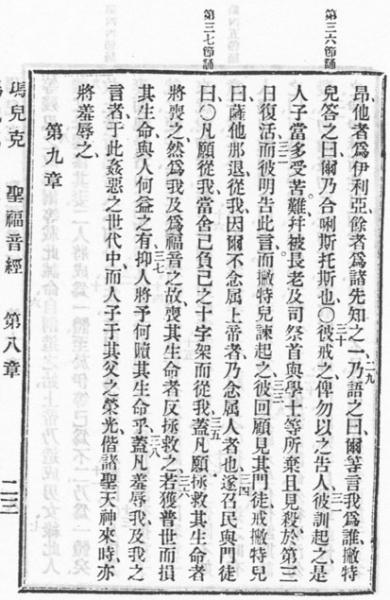 第三六節誦
第三七節誦
昂他者爲伊利亞餘者爲諸先知之一二九乃語之曰爾等言我爲誰撇特
兒答之曰爾乃合唎斯托斯也○三十彼戒之俾勿以之告人三一彼訓起之是
人子當多受苦難幷被長老及司祭首與學士等所棄且見殺於第三
日復活三二而彼明告此言而撇特兒諫起之三三彼回顧見其門徒戒撇特兒
曰薩他那退從我因爾不念属上帝者乃念属人者也三四遂召民與門徒
曰○凡願從我當舍己負己之十字架而從我三五蓋凡願拯救其生命者
將喪之然爲我及爲福音之故喪其生命者反拯救之三六若獲普世而損
其生命與人何益之有三七抑人將予何贖其生命乎三八蓋凡羞辱我及我之
言者于此姦惡之世代中而人子于其父之榮光偕諸聖天神來時亦
將羞辱之
第九章
瑪兒克 聖福音經 第八章 二三